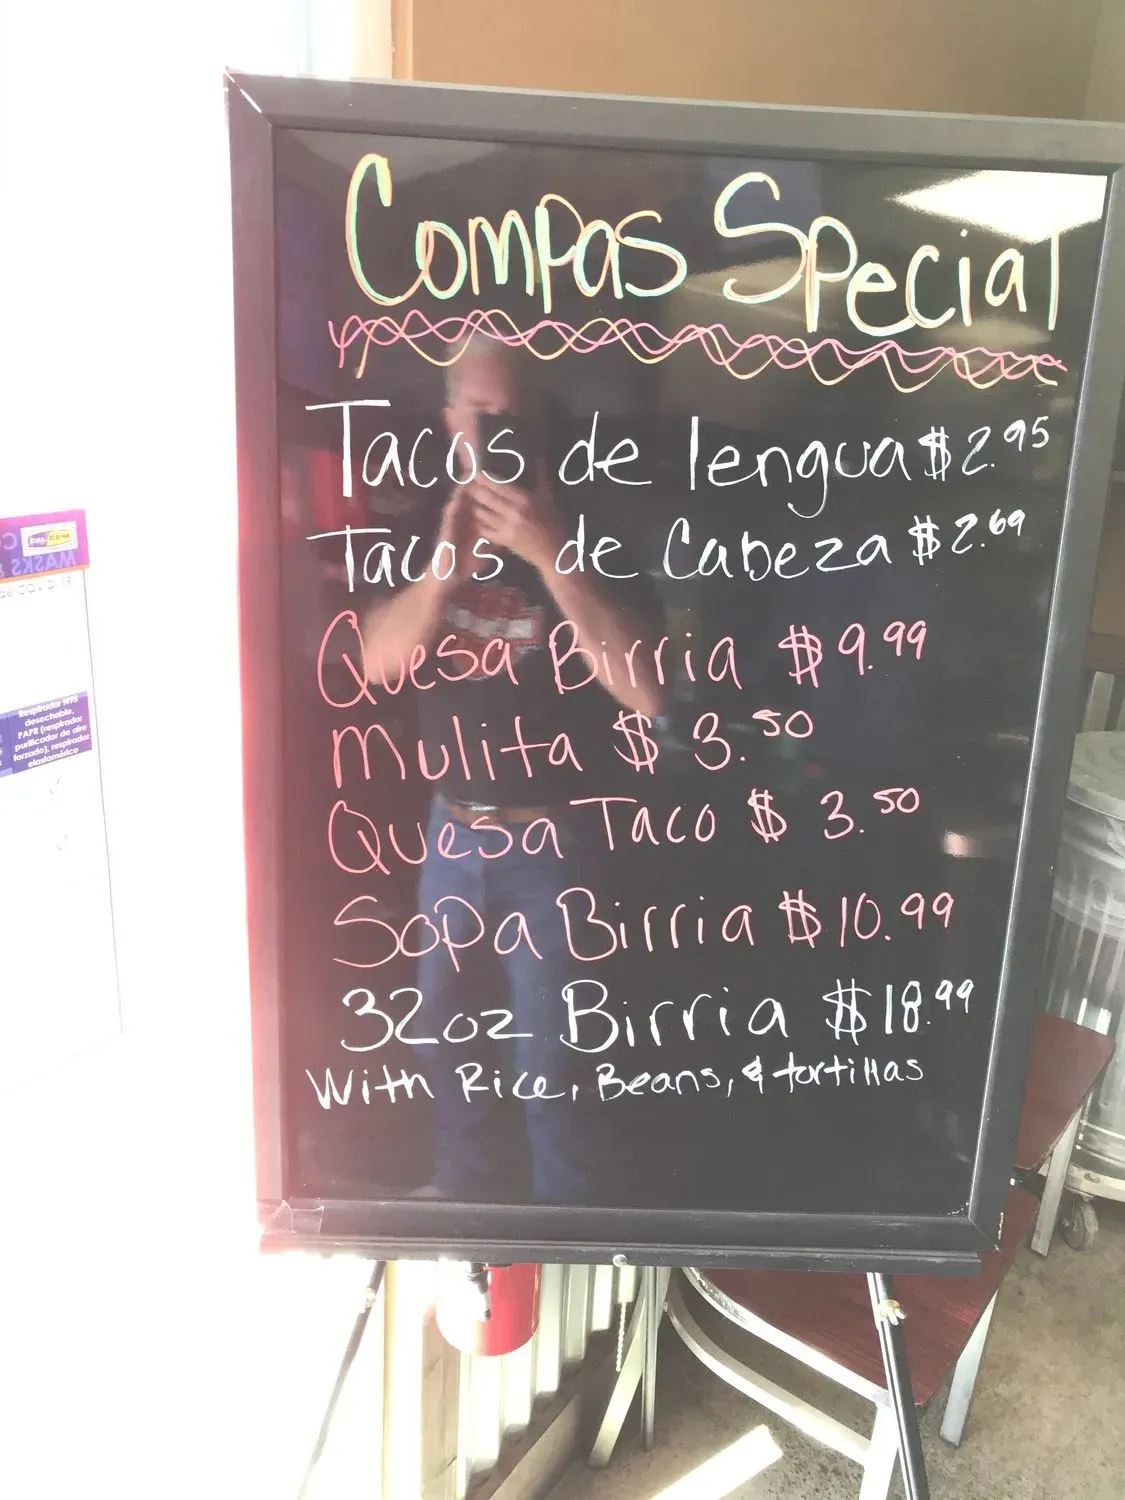 Compas Special
Tacos de lengua $2.95
Tacos de Cabeza $2.69
Quesa Birria $9.99
Mulita $3.50
Quesa Taco $3.50
Sopa Birria $10.99
32oz Birria $18.99
With Rice, Beans, & tortillas
MASKS
Respirador N95
desechable,
PAPR (respirador
purificador de aire
forzado), respirador
elastomérico